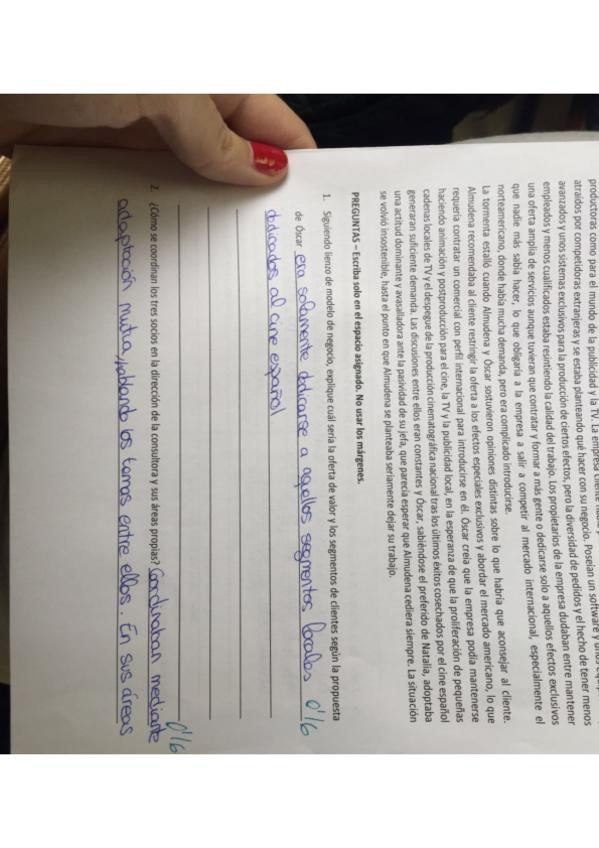 productoras como para el mundo de la publicidad y la TV. La empresa cliente
atraídos por competidoras extranjeras y se estaba planteando qué hacer con su negocio. Poseían un software y unos
avanzados y unos sistemas exclusivos para la producción de ciertos efectos, pero la diversidad de pedidos y el hecho de tener menos
empleados y menos cualificados estaba resintiendo la calidad del trabajo. Los propietarios de la empresa dudaban entre mantener
una oferta amplia de servicios aunque tuvieran que contratar y formar a más gente o dedicarse solo a aquellos efectos exclusivos
que nadie más sabía hacer, lo que obligaría a la empresa a salir a competir al mercado internacional, especialmente el
norteamericano, donde había mucha demanda, pero era complicado introducirse.
La tormenta estalló cuando Almudena y Óscar sostuvieron opiniones distintas sobre lo que habría que aconsejar al cliente.
Almudena recomendaba al cliente restringir la oferta a los efectos especiales exclusivos y abordar el mercado americano, lo que
requería contratar un comercial con perfil internacional para introducirse en él. Óscar creía que la empresa podía mantenerse
haciendo animación y postproducción para el cine, la TV y la publicidad local, en la esperanza de que la proliferación de pequeñas
cadenas locales de TV y el despegue de la producción cinematográfica nacional tras los últimos éxitos cosechados por el cine español
generaran suficiente demanda. Las discusiones entre ellos eran constantes y Óscar, sabiéndose el preferido de Natalia, adoptaba
una actitud dominante y avasalladora ante la pasividad de su jefa, que parecía esperar que Almudena cediera siempre. La situación
se volvió insostenible, hasta el punto en que Almudena se planteaba seriamente dejar su trabajo.
PREGUNTAS – Escriba solo en el espacio asignado. No usar los márgenes.
1. Siguiendo lienzo de modelo de negocio, explique cuál sería la oferta de valor y los segmentos de clientes según la propuesta
de Óscar era solamente dedicarse a aquellos segmentos locales 0'16
dedicados al cine español
2. ¿Cómo se coordinan los tres socios en la dirección de la consultora y sus áreas propias? Coordinaban mediante 0'16
adaptación mutua, hablando los temas entre ellos. En sus áreas